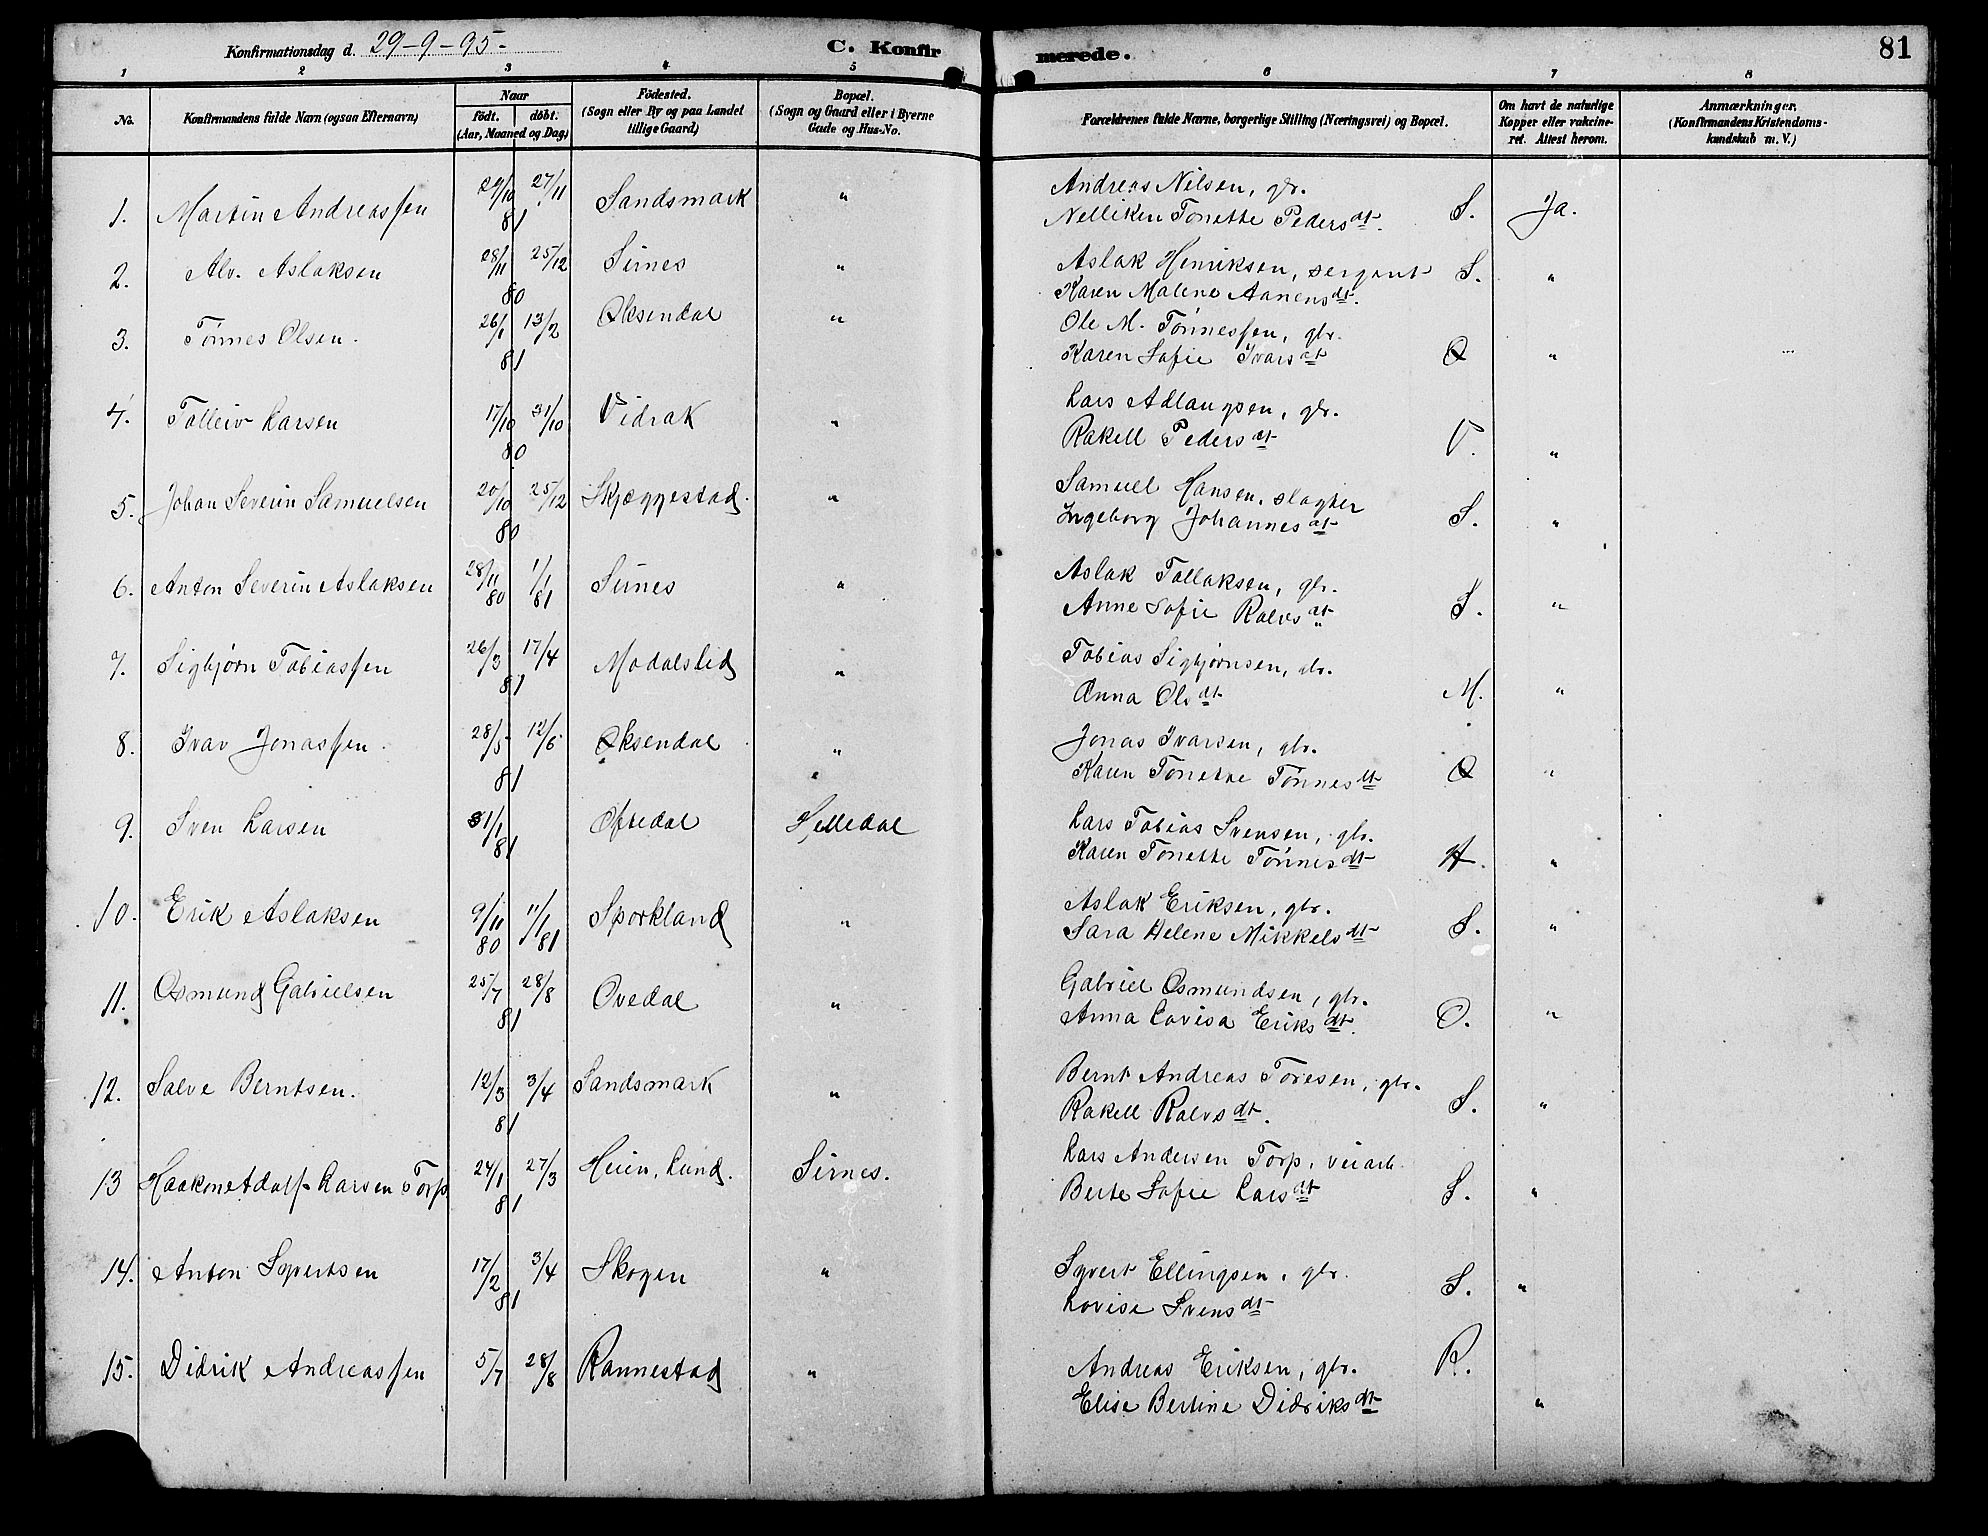 Konfirmationsdag d. 29-9-95- C. Konfirmerede. 81
1 2 3 4 5 6 7 8
No. Konfirmandens fulde Navn (ogsaa Efternavn) Naar født. døbt. (Aar, Maaned og Dag) Fødested. (Sogn eller By og paa Landet tillige Gaard) Bopæl. (Sogn og Gaard eller i Byerne Gade og Hus-No. Forældrenes fulde Navne, borgerlige Stilling (Næringsvei) og Bopæl. Om havt de naturlige Kopper eller vakcineret. Attest herom. Anmærkninger. (Konfirmandens Kristendomskundskab m. V.)
1. Martin Andreassen 29/10 27/11 81 Sandsmark " Andreas Nilsen, gbr.
Nelliken Tonette Pedersdt. S. Ja.
2. Alv. Aslaksen 28/11 25/12 80 Sirnes " Aslak Henriksen, sergant
Karen Malene Aanensdt. S. "
3. Tønnes Olsen. 26/1 13/2 81 Øksendal " Ole M. Tønnessen, gbr.
Karen Sofie Ivarsdt Ø "
4. Talleiv Larsen 17/10 31/10 80 Vidrak " Lars Adlaugsen, gbr.
Rakell Pedersdt V. "
5. Johan Severin Samuelsen 20/10 25/12 80 Skjæggestad. " Samuel Hansen, slagter
Ingeborg Johannesdt S. "
6. Anton Severin Aslaksen 28/11 80 1/1 81 Sirnes " Aslak Tallaksen, gbr.
Anne Sofie Ralvsdt S. "
7. Sigbjørn Tobiassen 26/3 17/4 81 Modalslid " Tobias Sigbjørnsen, gbr.
Anna Olsdt M. "
8. Ivar Jonassen. 28/5 12/6 81 Øksendal " Jonas Ivarsen, gbr.
Karen Tonette Tønnesdt Ø "
9. Sven Larsen 31/1 81 Oftedal Helledal Lars Tobias Svensen, gbr.
Karen Tonette Tønnesdt H. "
10. Erik Aslaksen 9/11 80 11/1 81 Sporkland " Aslak Eriksen, gbr.
Sara Helene Mikkelsdt S. "
11. Osmund Gabrielsen 25/7 28/8 81 Ovedal " Gabriel Osmundsen, gbr.
Anna Lovisa Eriksdt. O. "
12. Salve Berntsen. 12/3 3/4 81 Sandsmark " Bernt Andreas Toresen, gbr.
Rakell Ralvsdt. S. "
13 Haakon Adolf Larsen Torp 24/1 27/3 81 Heien, Lund. Sirnes. Lars Andersen Torp, veiarb.
Berte Sofie Larsdt S. "
14. Anton Syvertsen 17/2 3/4 81 Skogen " Syvert Ellingsen, gbr.
Lovise Svensdt S. "
15. Didrik Andreassen 5/7 28/8 Rannestad " Andreas Eriksen, gbr. R.
Elise Bertine Didriksdt "